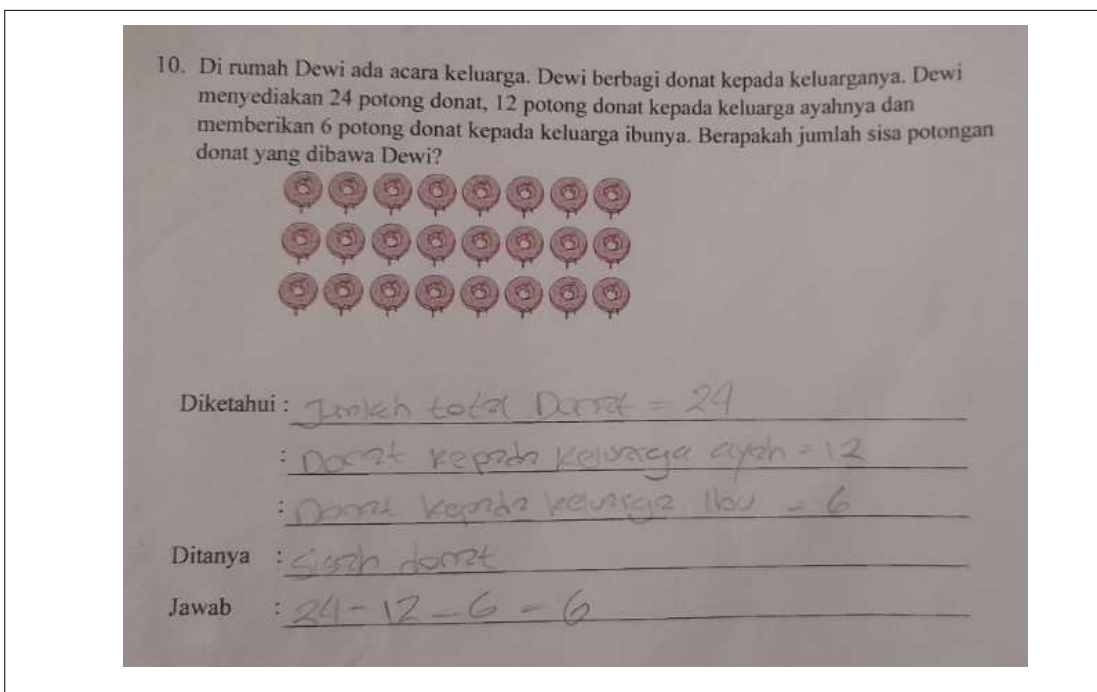 10. Di rumah Dewi ada acara keluarga. Dewi berbagi donat kepada keluarganya. Dewi
menyediakan 24 potong donat, 12 potong donat kepada keluarga ayahnya dan
memberikan 6 potong donat kepada keluarga ibunya. Berapakah jumlah sisa potongan
donat yang dibawa Dewi?
Diketahui : Jumlah total Donat = 24
: Donat kepada keluarga ayah = 12
: Donat kepada keluarga Ibu = 6
Ditanya : Sisah donat
Jawab : 24 - 12 - 6 = 6